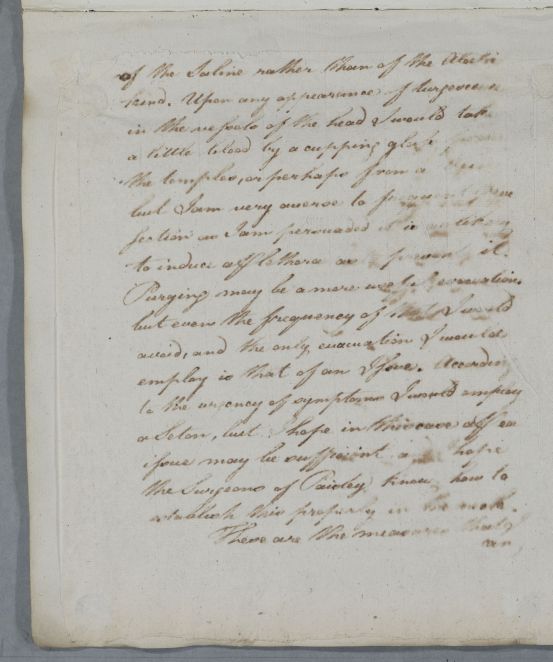 of the Saline rather than of the
kind. Upon any appearance of turgescence
in the vessels of the head I would take
a little blood by a cupping glass
the temples, or perhaps from a
but I am very averse to frequent
section as I am persuaded it is as likely
to induce a Plethora as prevent it.
Purging may be a more useful evacuation,
but even the frequency of that I would
avoid, and the only evacuation I would
employ is that of an Issue. According
to the urgency of symptoms I would employ
a Seton, but I hope in this case a Pea
issue may be sufficient and I hope
the Surgeons of Paisley know how to
establish this properly in the neck.
These are the measures that I
an